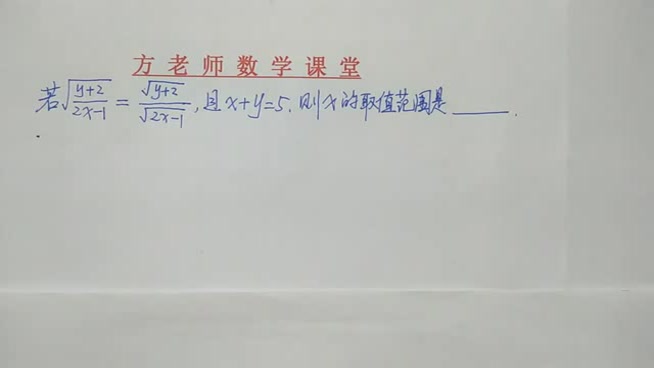 方老师数学课堂
若√(y+2)/(2x-1) = √y+2/√2x-1, 且x+y=5. 则x的取值范围是______.